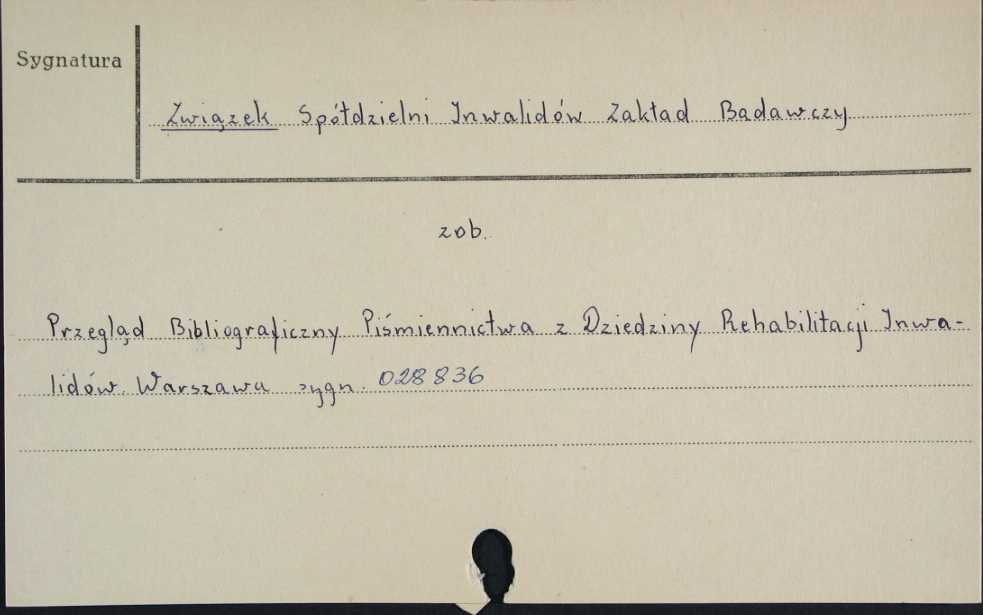 Sygnatura
Związek Spółdzielni Inwalidów Zakład Badawczy
zob.
Przegląd Bibliograficzny Piśmiennictwa z Dziedziny Rehabilitacji Inwa-
lidów. Warszawa sygn. 028836